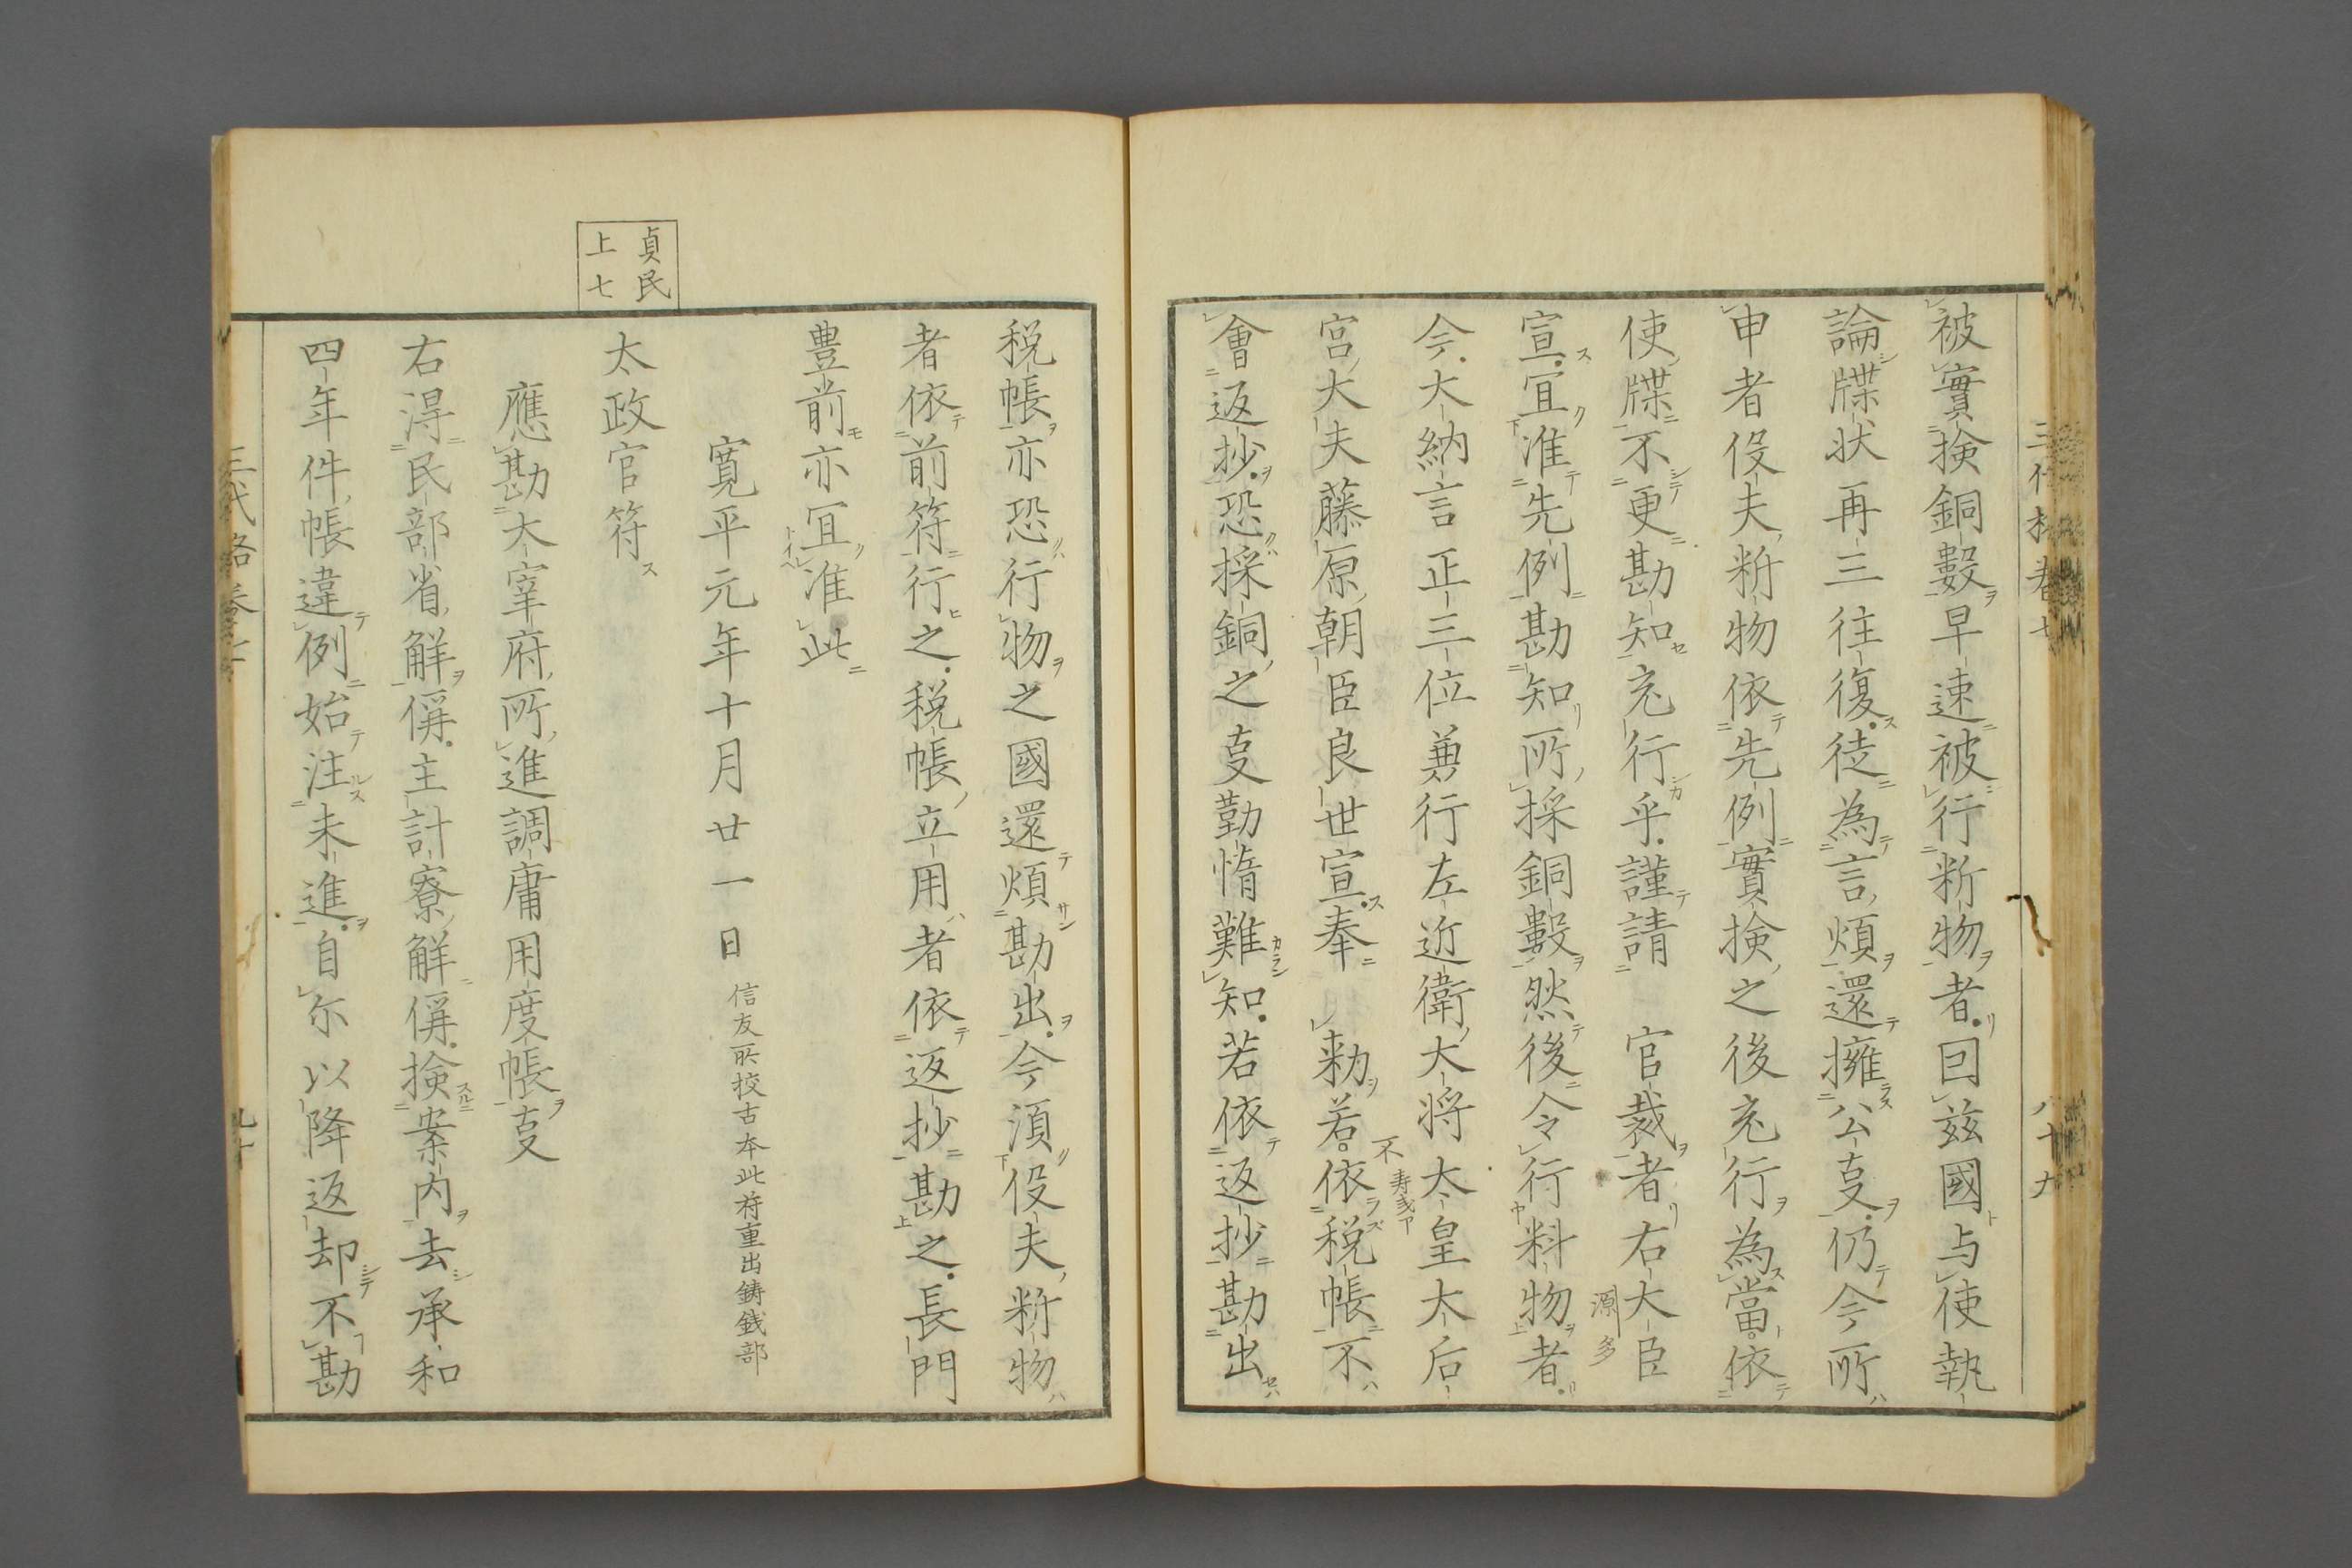 被實撿銅數早速被行䉼物者囙玆國与使執
論牒状再三往復徒為言煩還擁公㕝仍今所
申者役夫䉼物依先例實撿之後充行為當依
使牒不更勘知充行乎謹請　官裁者右大臣
源多
宣冝准先例勘知所採銅數然後令行料物者
今大納言正三位兼行左近衛大将太皇太后
宮大夫藤原朝臣良世宣奉　勅若依税帳不
不
會返抄恐採銅之㕝勤惰難知若依返抄勘出
税帳亦恐行物之國還煩勘出今須役夫䉼物
者依前符行之税帳立用者依返抄勘之長門
豊前亦冝准此
寛平元年十月廿一日 信友所挍古本此符重出鋳銭部
貞民
上七
太政官符
應勘大宰府所進調庸用度帳㕝
右得民部省解偁主計寮解偁撿案内去承和
四年件帳違例始注未進自尓以降返却不勘